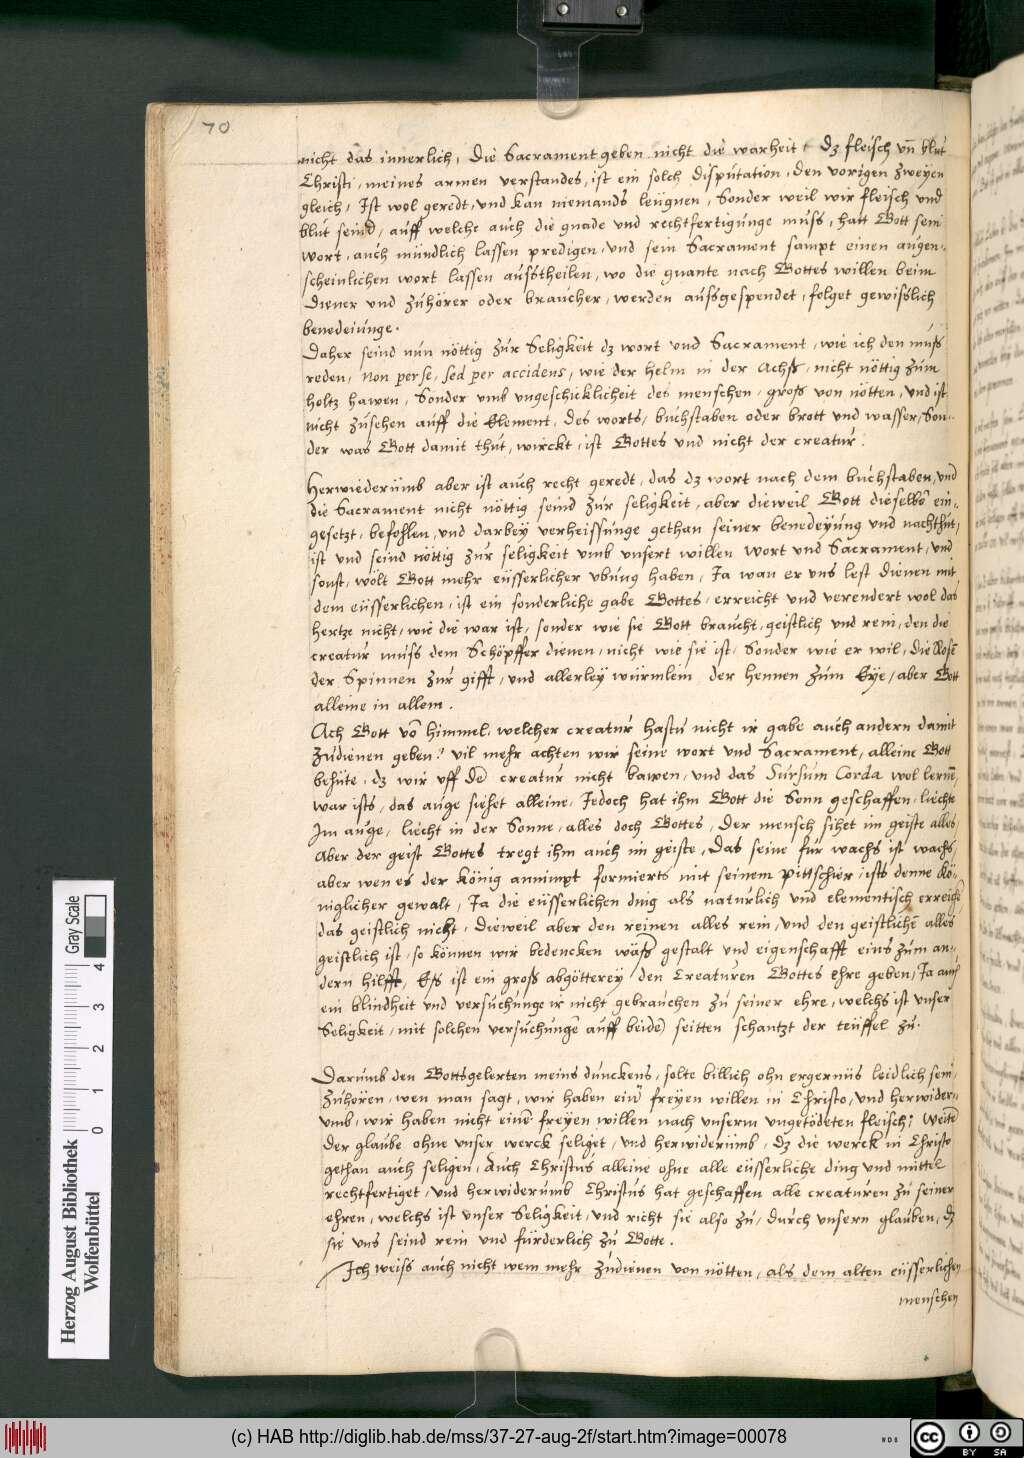 70
nicht das innerlich, Die Sacrament geben nicht die warheit, dz fleisch vn̄ blut
Christi, meines armen verstandes, ist ein solch disputation, den vorigen zweyen
gleich, Ist wol geredt, vnd kan niemands leügnen, Sonder weil wir fleisch vnd
blut seind, auff welche auch die gnade vnd rechtfertigunge muss, hatt Gott sein
wort, auch mündlich lassen predigen, vnd sein Sacrament sampt einen augen-
scheinlichen wort lassen ausstheilen, wo die quante nach Gottes willen beim
diener vnd zuhörer oder braucher, werden aussgespendet, folget gewisslich
benedeiunge.
Daher seind nun nöttig zur Seligkeit dz wort vnd Sacrament, wie ich den muss
reden, Non per se, sed per accidens, wie der helm in der Achss, nicht nöttig zum
holtz hawen, Sonder vmb vngeschicklicheit des menschen, gross von nötten, vnd ist
nicht zusehen auff die Element, des worts, buchstaben oder brott vnd wasser, Son-
der was Gott damit thut, wirckt, ist Gottes vnd nicht der creatur.
Herwiederümb aber ist auch recht geredt, das dz wort nach dem buchstaben, vnd
die Sacrament nicht nöttig seind zur seligkeit, aber dieweil Gott dieselbē ein-
gesetzt, befohlen, vnd darbey verheissunge gethan seiner benedeyung vnd nachthut,
ist vnd seind nöttig zur seligkeit vmb vnsert willen wort vnd Sacrament, vnd
sonst, wölt Gott mehr eüsserlicher vbung haben, Ja wan er vns lest dienen mit
dem eüsserlichen, ist ein sonderliche gabe Gottes, erreicht vnd verendert wol das
hertze nicht, wie die war ist, sonder wie sie Gott braucht, geistlich vnd rein, den die
creatur muss dem Schöpffer dienen, nicht wie sie ist, Sonder wie er wil, die Rosē
der Spinnen zur gifft, vnd allerley würmlein der hennen zum Eye, aber Gott
alleine in allem.
Ach Gott vō himmel, welcher creatur hastu nicht ir gabe auch andern damit
zudienen geben? vil mehr achten wir seine wort vnd Sacrament, alleine Gott
behüte, dz wir vff dē creatur nicht bawen, vnd das Sursum Corda wol lernē,
war ists, das auge siehet alleine, Jedoch hat ihm Gott die Sonn geschaffen, liechte
Im auge, liecht in der Sonne, alles doch Gottes, Der mensch sihet im geiste alles,
Aber der geist Gottes tregt ihm auch im geiste, Das seine für wachs ist wachs,
aber wen es der könig annimpt formierts mit seinem pittschier, ists denne kö-
niglicher gewalt, Ja die eüsserlichen ding als naturlich vnd elementisch erreichē
das geistlich nicht, Dieweil aber den reinen alles rein, vnd den geistlichē alles
geistlich ist, so können wir bedencken wäss gestalt vnd eigenschafft eins zum an-
dern hilfft, Ess ist ein gross abgötterey den Creaturen Gottes ehre geben, Ja auch
ein blindheit vnd versuchunge ir nicht gebrauchen zu seiner ehre, welchs ist vnser
Seligkeit, mit solchen versuchungē auff beidē seitten schantzt der teüffel zu.
Darumb den Gottsgelerten meins dunckens, solte billich ohn ergernüs leidlich sein,
zuhören, wen man sagt, wir haben einē freyen willen in Christo, vnd herwider-
vmb, wir haben nicht einē freyen willen nach vnserm vngetödeten fleisch; Weitē
der glaube ohne vnser werck seliget, vnd herwiderümb, dz die werck in Christo
gethan auch seligen, Auch Christus alleine ohne alle eüsserliche ding vnd mittel
rechtfertiget, vnd herwiderumb Christus hat geschaffen alle creaturen zu seiner
ehren, welchs ist vnser Seligkeit, vnd richt sie also zu, durch vnsern glauben, dz
sie vns seind rein vnd fürderlich zu Gotte.
Ich weiss auch nicht wem mehr zudienen von nötten, als dem alten eüsserlichen
menschen
Herzog August Bibliothek
Wolfenbüttel
0 1 2 3 4
Gray Scale
(c) HAB http://diglib.hab.de/mss/37-27-aug-2f/start.htm?image=00078
WDB
cc BY SA